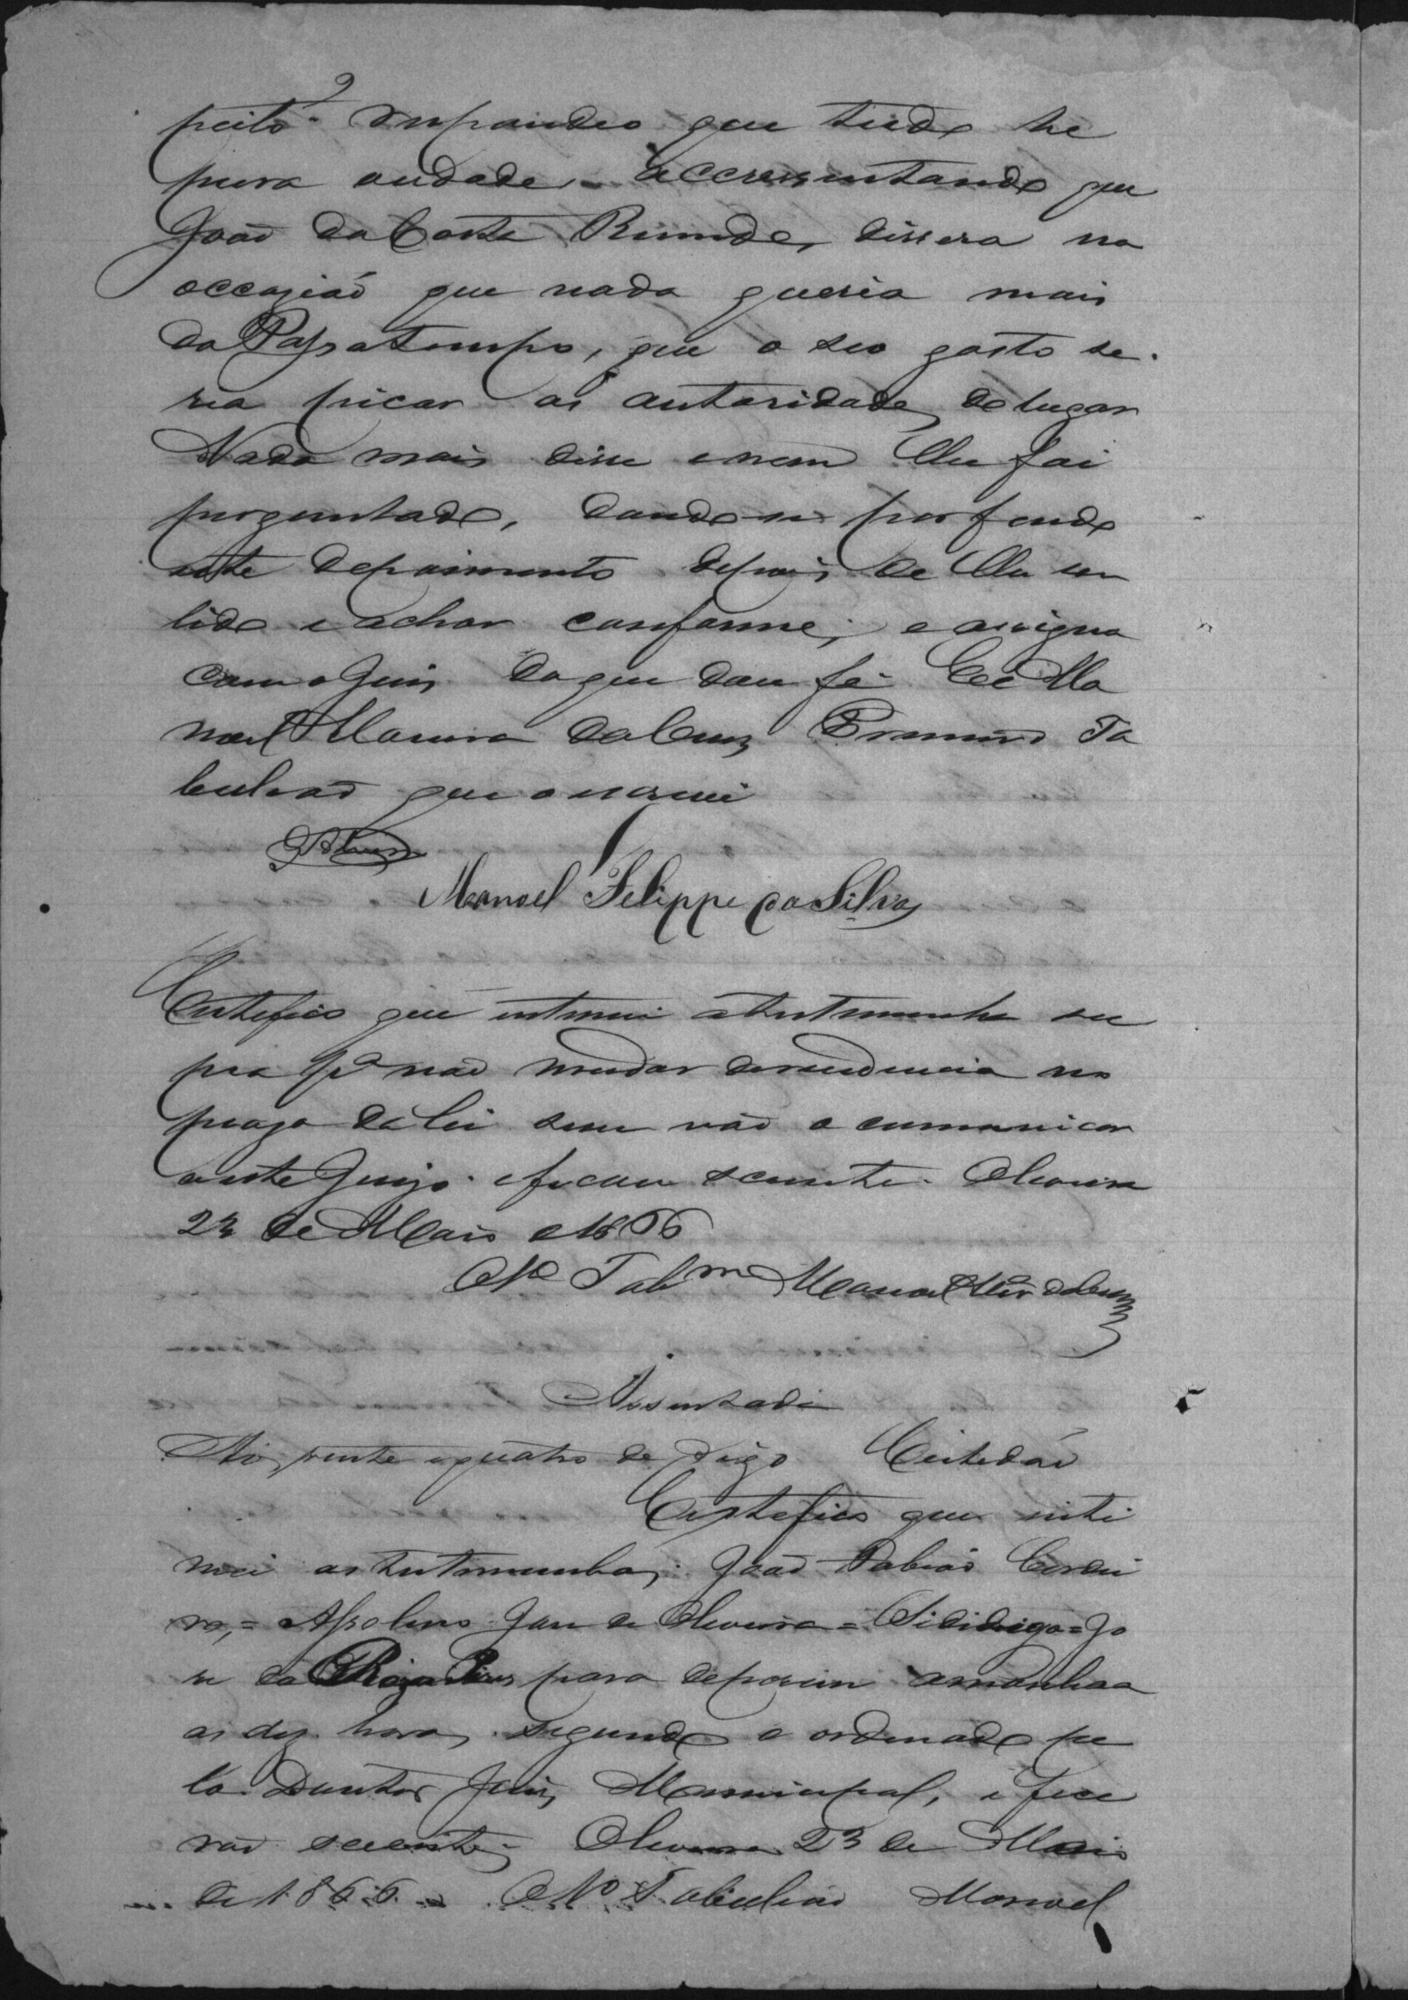 peito? respondeo que tudo he
pura verdade accressentando que
João da Costa Rezende, dissera na
occazião que nada queria mais
do Passatempo, que o seo gosto se-
ria picar as autoridades do lugar
Nada mais disse e nem lhe foi
perguntado, dando-se por findo
este depoimento depois de lhe ser
lido e achar conforme, e assigna
com o Juis do que dou fé. Eu Ma
noel Moreira da Cruz Primeiro Ta
bulião que o escrevi
Manoel Felippe da Silva
Certefico que intimei a testemunha su
pra pª não mudar de residencia no
prazo da lei sem não o comunicar
a este Juizo. e ficou sciente. Oliveira
23 de Maio de 1866
O 1º Tabm Manoel Mor da Cruz
Assentada
Aos vinte e quatro de digo Certidão
Certefico que inti
mei as testemunhas João Fabião Cordei
ro, = Jose de Oliveira = = Jo
se da para deporem amanhaa
as dez horas, segundo o ordenado pe
lo Doutor Juis Municipal, e fica
rão scientes. Oliveira 23 de Maio
de 1866. O 1º Tabulião Manoel